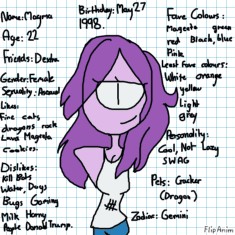 Name: Magma
Age: 22
Friends: Dextra
Gender: Female
Sexuality: Asexual
Likes:
Fire cats
dragons rock
Lava Magma
Cookies.
Dislikes:
Kill Bots
Water, Dogs
Bugs Gaming
Milk Horny
People Donald Trump.
Birthday: May 27
1998.
Fave Colours:
Magenta green
red Black, blue
Pink
Least fave colours:
White orange
yellow
Light
grey
Personality:
Cool, Not Lazy
SWAG
Pets: Cracker
(Dragon)
Zodiac: Gemini
#
FlipAnim